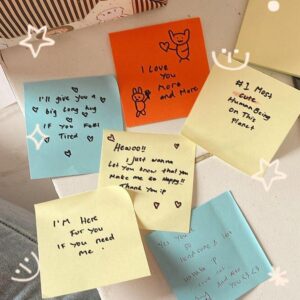 I Love
You
More
and More
I'll give you a
big Long hug
IF You FEEl
Tired
#1 Most
Cute
Human Being
on This
Planet
Hewoo!!
I just wanna
Let You know that you
Make me so Happy!!
Thank You :p
I'M Here
For You
IF You need
Me.
You